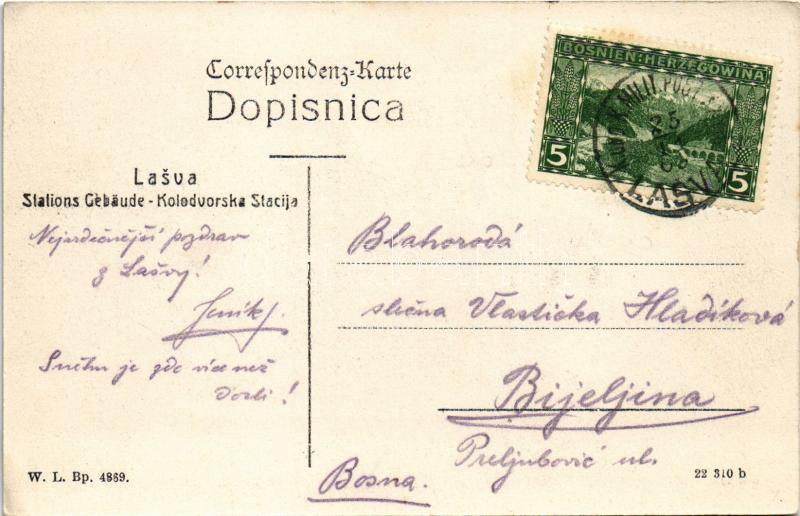 Correspondenz-Karte
Dopisnica
BOSNIEN-HERZEGOWINA
5 5
K.u.K. MILIT. POST
25
08
LAŠVA
Lašva
Stations Gebäude - Kolodvorska Stacija
Nejsrdečnější pozdrav
z Lašvy!
Jeník
Sněhu je zde více než
dosti!
Blahorodá
slečna Vlastička Hladíková
Bijeljina
Preljubović ul.
Bosna.
W. L. Bp. 4869.
22 310 b